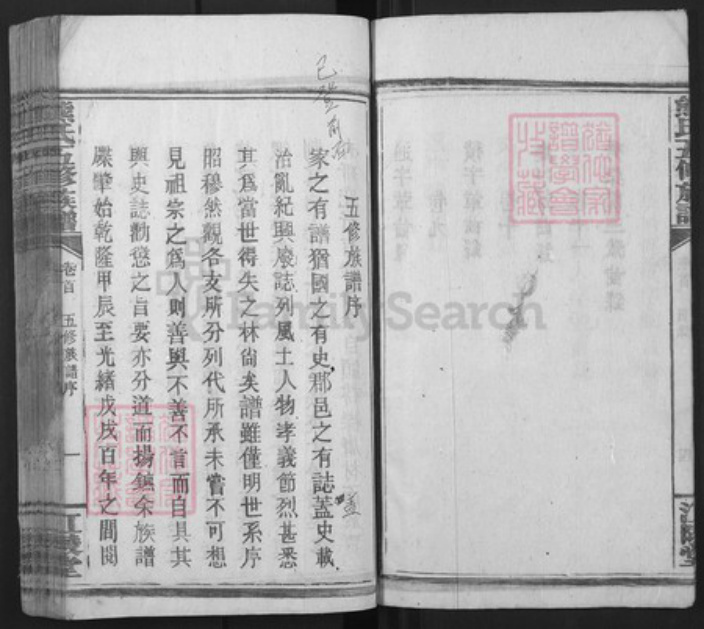 熊氏五修族譜
江陵堂
已登前
五修族譜序
家之有譜猶國之有史郡邑之有誌蓋史載
蓋
治亂紀興廢誌列風土人物孝義節烈甚悉
其為當世得失之林尚矣譜雖僅明世系序
昭穆然觀各支所分列代所承未嘗不可想
見祖宗之為人則善與不善不言而自具其
與史誌勸懲之旨要亦分道而揚鑣余族譜
牒肇始乾隆甲辰至光緒戊戌百年之間閱
熊氏五修族譜
卷首
五修族譜序
一
江陵堂
FamilySearch